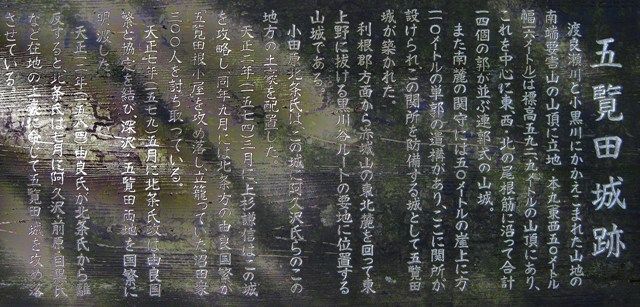 五覧田城跡
渡良瀬川と小黒川にかかえこまれた山地の
南端要害山の山頂に立地。本丸東西五〇メートル
幅六メートルは標高五九二.九メートルの山頂にあり、
これを中心に東西、北の尾根筋に沿って合計
一四個の郭が並ぶ連郭式の山城。
また南麓の関守には五〇メートルの崖上に方
二〇メートルの単郭の遺構があり、ここに関所が
設けられ、この関所を防備する城として五覧田
城が築かれた。
利根郡方面から赤城山の東北麓を回って東
上野に抜ける黒川谷ルートの要地に位置する
山城である。
小田原北条氏はこの城に阿久沢氏らのこの
地方の土豪を配置した。
天正二年(一五七四)三月に上杉謙信はこの城
を攻略し、同年九月には北条方の由良国繁が
五覧田根小屋を攻め落し立籠っていた沼田衆
三〇〇人を討ち取っている。
天正七年(一五七九)五月に北条氏政は由良国
繁と協定を結び、深沢、五覧田両地を国繁に
明渡した。
天正一二年(一五八四)由良氏が北条氏から離
反すると北条氏は 月に阿久沢、前原、目黒氏
など在地の土豪に命じて五覧田城を攻め落
させている。